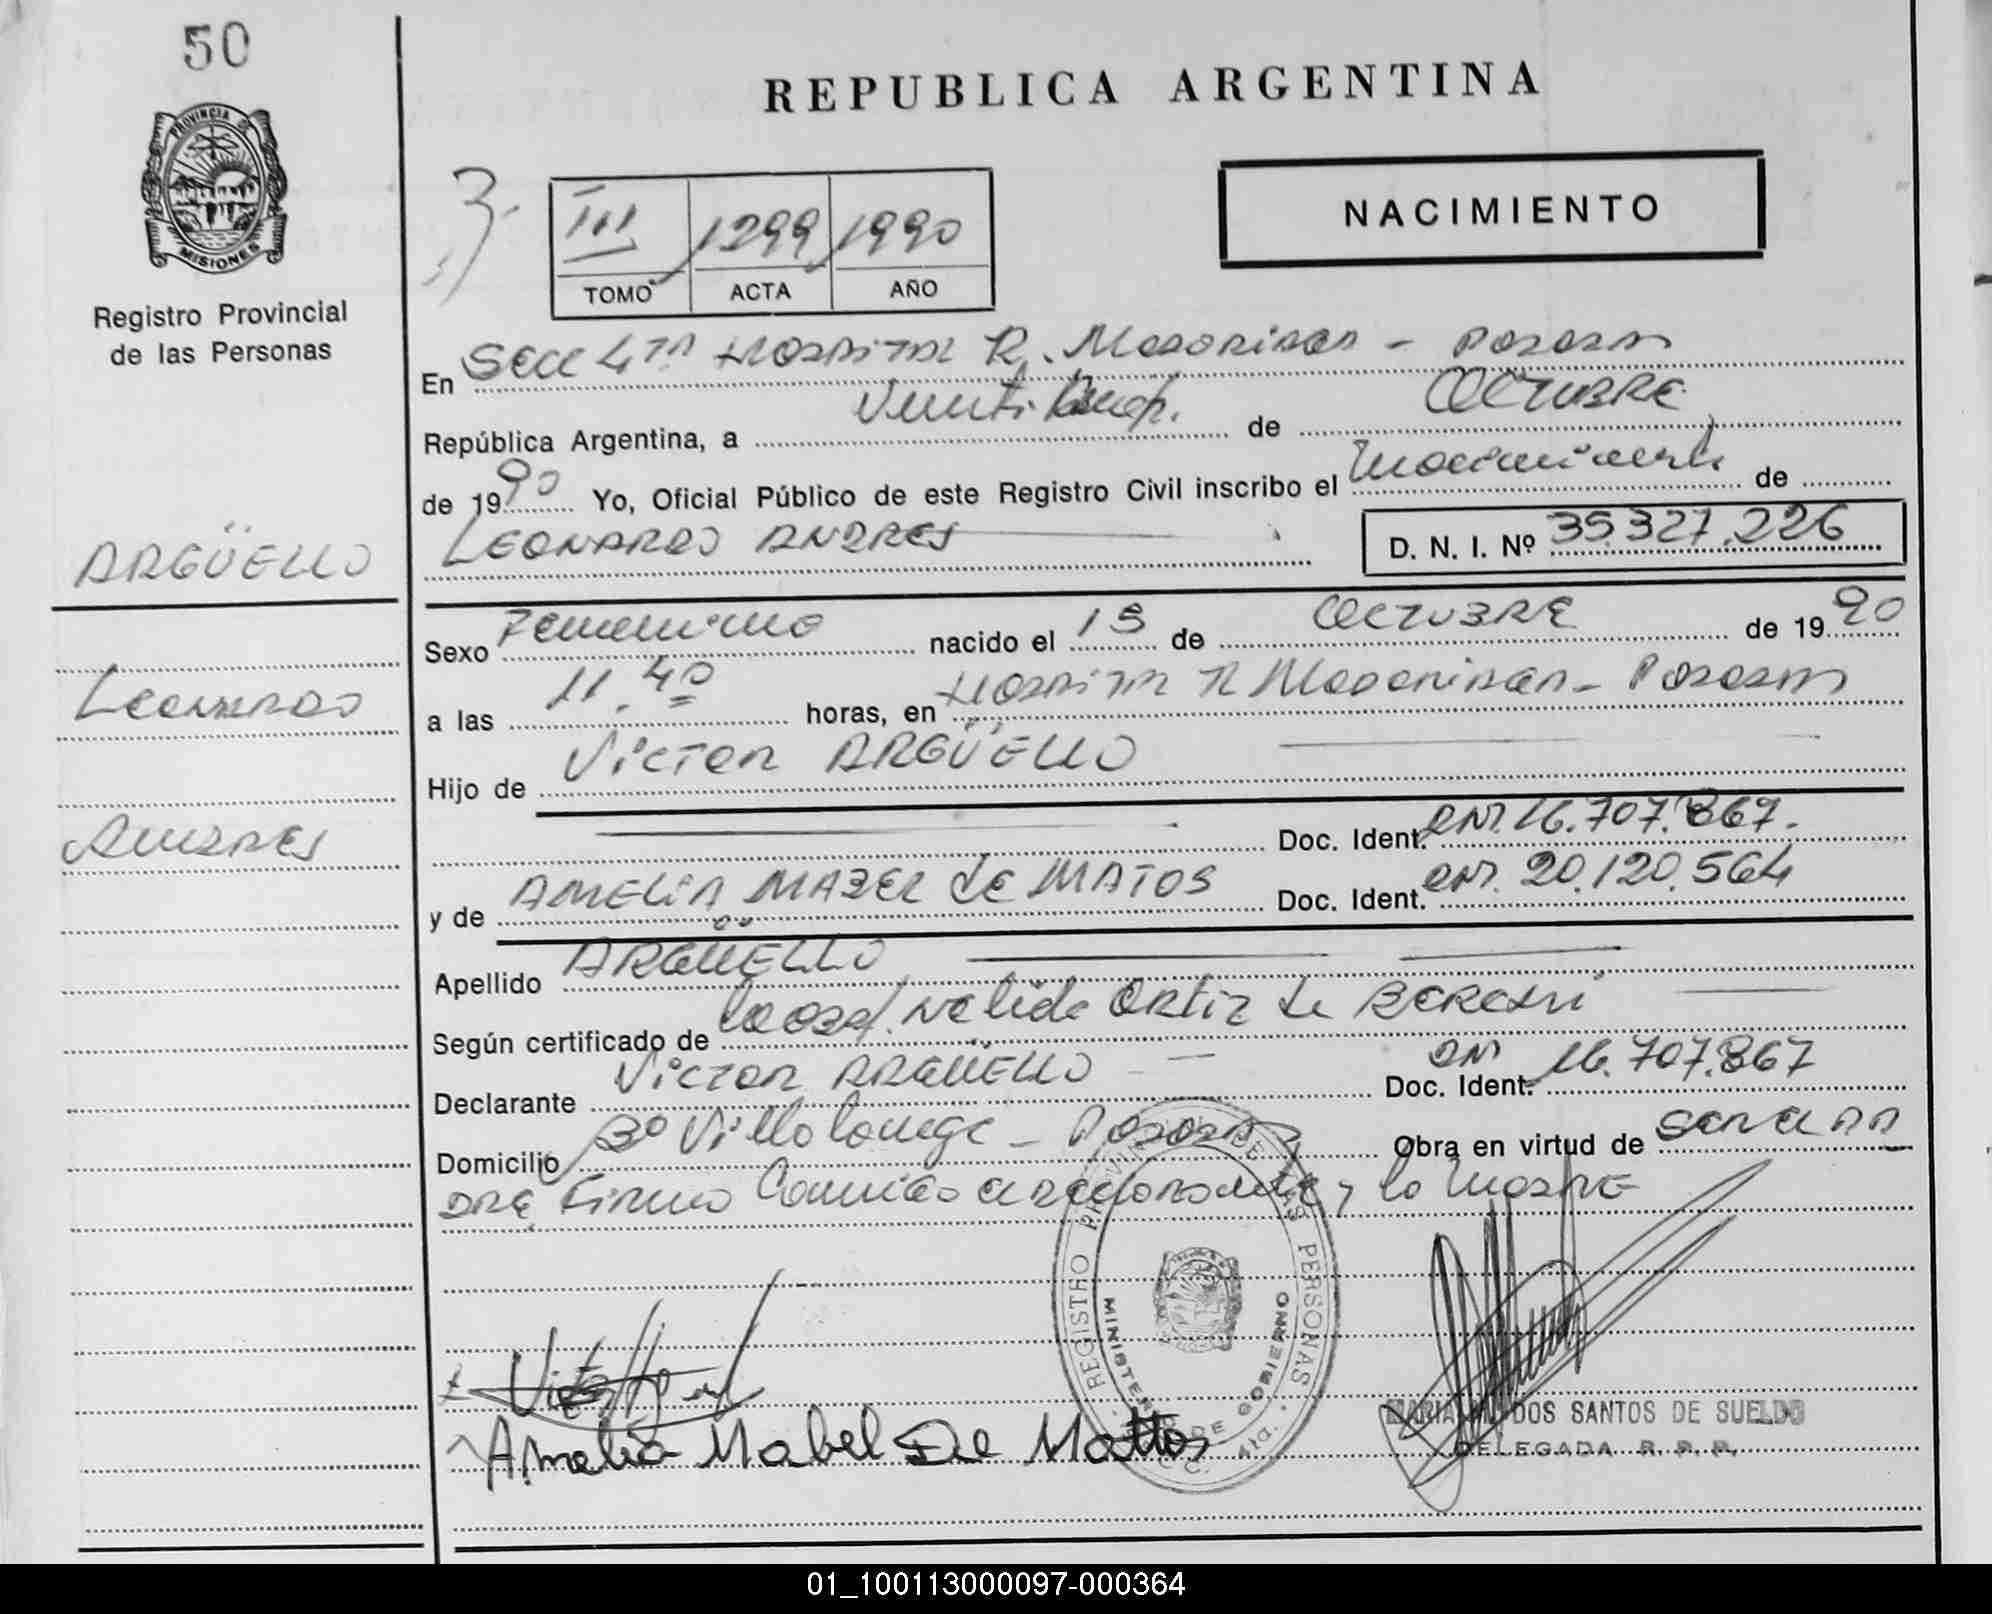 50
REPUBLICA ARGENTINA
PROVINCIA DE
MISIONES
Registro Provincial
de las Personas
3.
III 1299 1990
TOMO ACTA AÑO
NACIMIENTO
En Secc 4ta Hospital R. Madariaga - Posadas
República Argentina, a de OCTUBRE
de 1990 Yo, Oficial Público de este Registro Civil inscribo el nacimiento de
LEONARDO ANDRES D. N. I. Nº 35.327.226
ARGÜELLO
Leonardo
Andres
Sexo Femenino nacido el 15 de OCTUBRE de 1990
a las 11.40 horas, en Hospital R Madariaga - Posadas
Hijo de Victor ARGÜELLO
Doc. Ident. DNI. 16.707.867.
y de AMELIA MABEL de MATOS Doc. Ident. DNI. 20.120.564
Apellido ARGÜELLO
Según certificado de la obst. Nelida Ortiz de
Declarante Victor ARGÜELLO Doc. Ident. DNI 16.707.867
Domicilio Bº Villalonga - Posadas Obra en virtud de
Firma y la madre
REGISTRO PROVINCIAL DE LAS PERSONAS
MINISTERIO DE GOBIERNO
Amelia Mabel De Mattos
MARIA DOS SANTOS DE SUELDO
DELEGADA R. P. P.
01_100113000097-000364